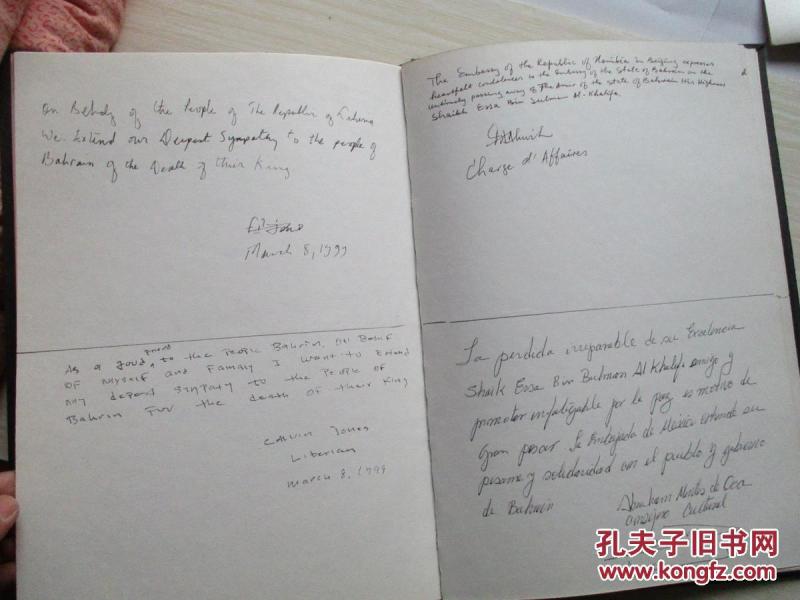 On Behalf of the People of The Republic of Liberia
We Extend our Deepest Sympathy to the people of
Bahrain of the Death of their King
March 8, 1999
As a good friend, to the People Bahrin, on Beaf
OF Myself and Famaly I want to Extend
My depest synpaty to the People of
Bahrin For the death of their King
Calvin Jones
Liberian
March 8, 1999
The Embassy of the Republic of Namibia in Beijing expresses
heartfelt condolences to the Embassy of the State of Bahrain on the
untimely passing away of The Amir of the State of Bahrain His Highness
Shaikh Essa Bin Sulman Al-Khalifa.
Charge d'Affaires
La perdida irreparable de su Excelencia
Shaik Essa Bin Bulman Al Khalifa amigo y
promotor infatigable por la paz es motivo de
gran pesar. La Embajada de México extiende su
pesame y solidaridad con el pueblo y gobierno
de Bahrein
Abraham Montes de Oca
Consejero Cultural
孔夫子旧书网
www.kongfz.com